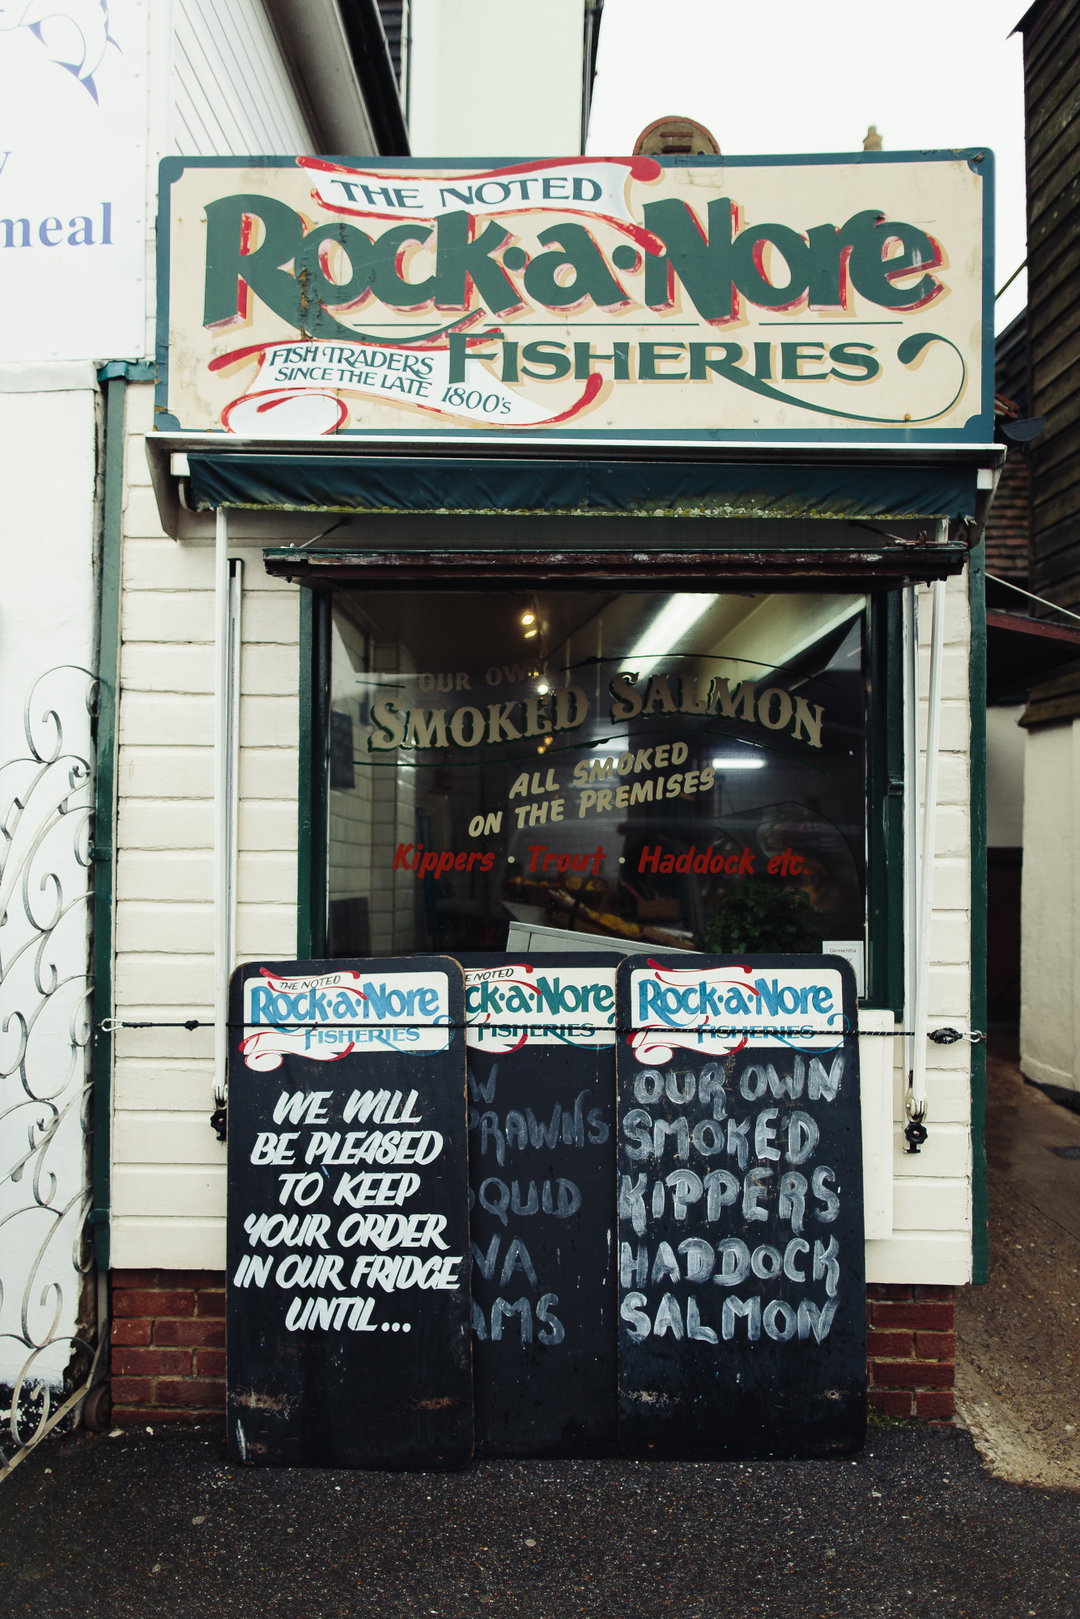 meal
THE NOTED
Rock·a·Nore
FISHERIES
FISH TRADERS
SINCE THE LATE 1800's
OUR OWN
SMOKED SALMON
ALL SMOKED
ON THE PREMISES
Kippers · Trout · Haddock etc.
Dementia
THE NOTED
Rock·a·Nore
FISHERIES
WE WILL
BE PLEASED
TO KEEP
YOUR ORDER
IN OUR FRIDGE
UNTIL...
E NOTED
ck·a·Nore
FISHERIES
W
PRAWNS
SQUID
VA
AMS
Rock·a·Nore
FISHERIES
OUR OWN
SMOKED
KIPPERS
HADDOCK
SALMON